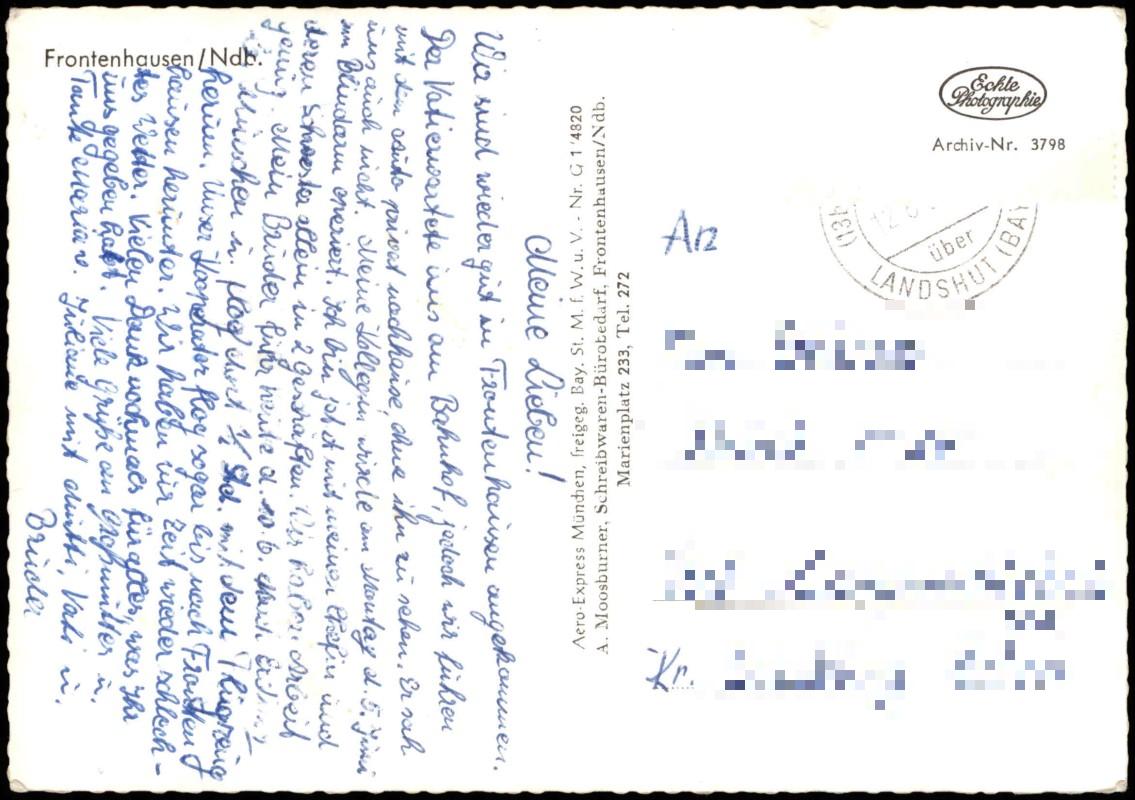 Frontenhausen/Ndb.
Echte
Photographie
Archiv-Nr. 3798
über
LANDSHUT (BAY
(13b)
12. 6.
Meine Lieben!
Wir sind wieder gut in Frontenhausen angekommen.
Der Vati erwartete uns am Bahnhof, jedoch wir fuhren
mit dem Auto privat nachhause, ohne ihn zu sehen. Er sah
uns auch nicht. Meine Kollegin wurde am Montag d. 5. Juni
am Blinddarm operiert. Ich bin jetzt mit meiner Chefin und
deren Schwester allein in 2 Geschäften. Wir haben Arbeit
genug. Mein Bruder fuhr heute d. 10. 6. nach
München u. flog dort 1/2 Std. mit dem Flugzeug
herum. Unser Kooperator flog sogar bis nach Fronten
hausen herunter. Wir haben zur Zeit wieder schlech-
tes Wetter. Vielen Dank nochmals für alles, was Ihr
uns gegeben habt. Viele Grüße an Großmutter u.
Tante Maria v. Juliane mit Mutti, Vati u.
Brüder
Aero-Express München, freigeg. Bay. St. M. f. W. u. V. - Nr. G 1/4820
A. Moosburner, Schreibwaren-Bürobedarf, Frontenhausen/Ndb.
Marienplatz 233, Tel. 272
An
Kr.